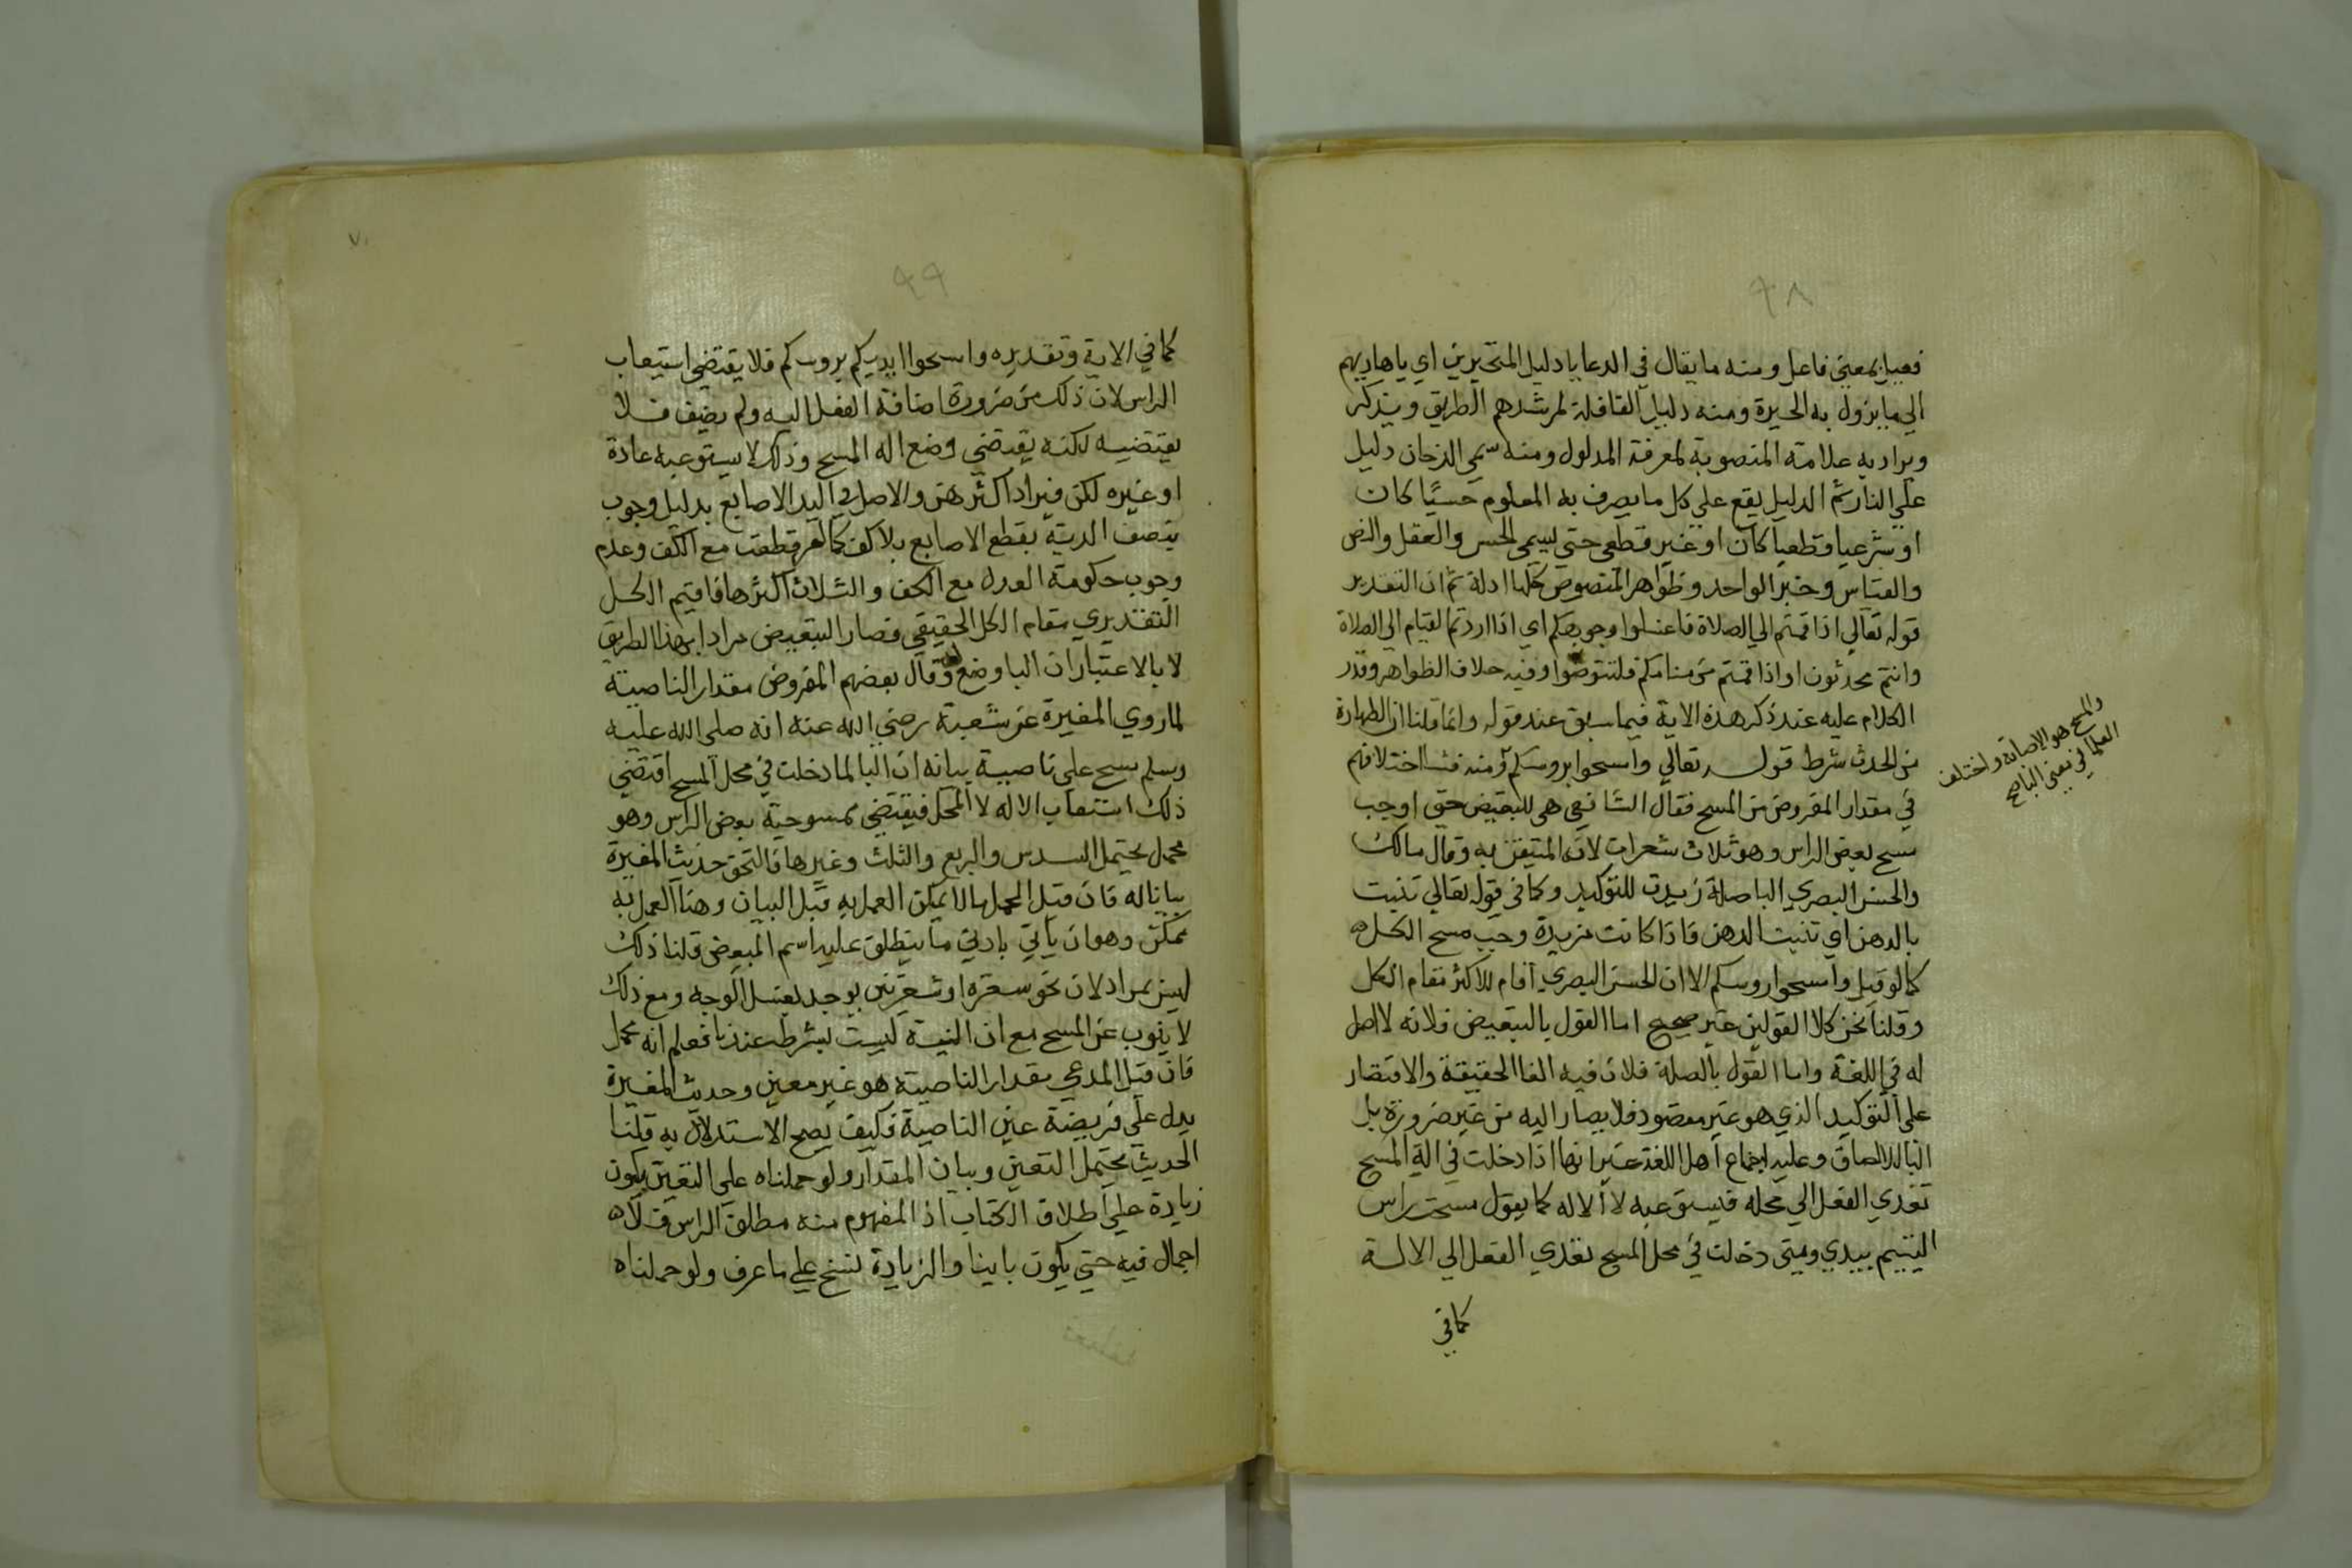 ٩٨
فعيل بمعني فاعل ومنه ما يقال في الدعا يا دليل المتحيرين اي يا هاديهم
الي ما يزول به الحيرة ومنه دليل القافلة لمرشدهم الطريق ويذكر
ويراد به علامة المنصوبة لمعرفة المدلول ومنه سمي الدخان دليل
علي النار ثم الدليل يقع علي كل ما يعرف به المعلوم حسيا كان
او شرعيا قطعيا كان او غير قطعي حتي يسمي الحس والعقل والنص
والقياس وخبر الواحد وظواهر النصوص كلها ادلة ثم ان التقدير
قوله تعالي اذا قمتم الي الصلاة فاغسلوا وجوهكم اي اذا اردتم القيام الي الصلاة
وانتم محدثون او اذا قمتم من منامكم فلتتوضوا وفيه خلاف الظواهر وقدر
الكلام عليه عند ذكر هذه الاية فيما سبق عند قوله وانما قلنا ان الطهارة
من الحدث شرط قوله تعالي وامسحوا بروسكم ومنه منشا اختلافهم
في مقدار المفروض من المسح فقال الشافعي هي للتبعيض حتي اوجب
مسح بعض الراس وهو ثلاث شعرات لان المتيقن به وقال مالك
والحسن البصري الباصلة زيدت للتوكيد وكما في قوله تعالي تنبت
بالدهن اي تنبت الدهن فاذا كانت مزيدة وجب مسح الكل
كما لو قيل وامسحوا روسكم الا ان الحسن البصري اقام للاكثر مقام الكل
وقلنا نحن كلا القولين غير صحيح اما القول بالتبعيض فلانه لا اصل
له في اللغة واما القول بالصلة فلان فيه الغا الحقيقة والاقتصار
علي التوكيد الذي هو غير مقصود فلا يصار اليه من غير ضرورة بل
البا للالصاق وعليه اجماع اهل اللغة غير انها اذا دخلت في الة المسح
تعدي الفعل الي محله فيستوعبه لا الاله كما يقول مسحت راس
اليتيم بيدي ومتي دخلت في محل المسح تعدي الفعل الي الالة
كما في
والمسح هو الاصابة واختلف
العلما في
٩٩
كما في الاية وتقديره وامسحوا ايديكم بروسكم فلا يقتضي استيعاب
الراس لان ذلك من ضرورة اضافة الفعل اليه ولم يضف فلا
يقتضيه لكنه يقتضي وضع اله المسح وذلك لا يستوعبه عادة
او غيره لكن فيراد اكثرهن والاصل في اليد الاصابع بدليل وجوب
نصف الدية بقطع الاصابع بلا كف كما لو قطعت مع الكف وعدم
وجوب حكومة العدل مع الكف والثلاث اكثرها فاقيم الكل
التقديري مقام الكل الحقيقي فصار التبعيض مرادا بهذا الطريق
لا بالاعتبار ان البا وضع له وقال بعضهم المفروض مقدار الناصية
لما روي المغيرة عن شعبة رضي الله عنه انه صلي الله عليه
وسلم مسح علي ناصية بيانه ان البا لما دخلت في محل المسح اقتضي
ذلك استيعاب الاله لا المحل فيقتضي ممسوحية بعض الراس وهو
مجمل يحتمل السدس والربع والثلث وغيرها فالتحق حديث المغيرة
بيانا له فان قيل المجمل ما لا يمكن العمل به قبل البيان وهنا العمل به
ممكن وهو ان ياتي بادني ما ينطلق عليه اسم البعض قلنا ذلك
ليس بمراد لان نحو شعره او شعرتين يوجد بغسل الوجه ومع ذلك
لا ينوب عن المسح مع ان النية ليست بشرط عندنا فعلم انه مجمل
فان قيل المدعي مقدار الناصية هو غير معين وحديث المغيرة
يدل علي فريضة عين الناصية فكيف يصح الاستدلال به قلنا
الحديث يحتمل التعين وبيان المقدار ولو حملناه علي التعين يكون
زيادة علي اطلاق الكتاب اذ المفهوم منه مطلق الراس فلا
اجمال فيه حتي يكون بابينا والزيادة نسخ علي ما عرف ولو حملناه